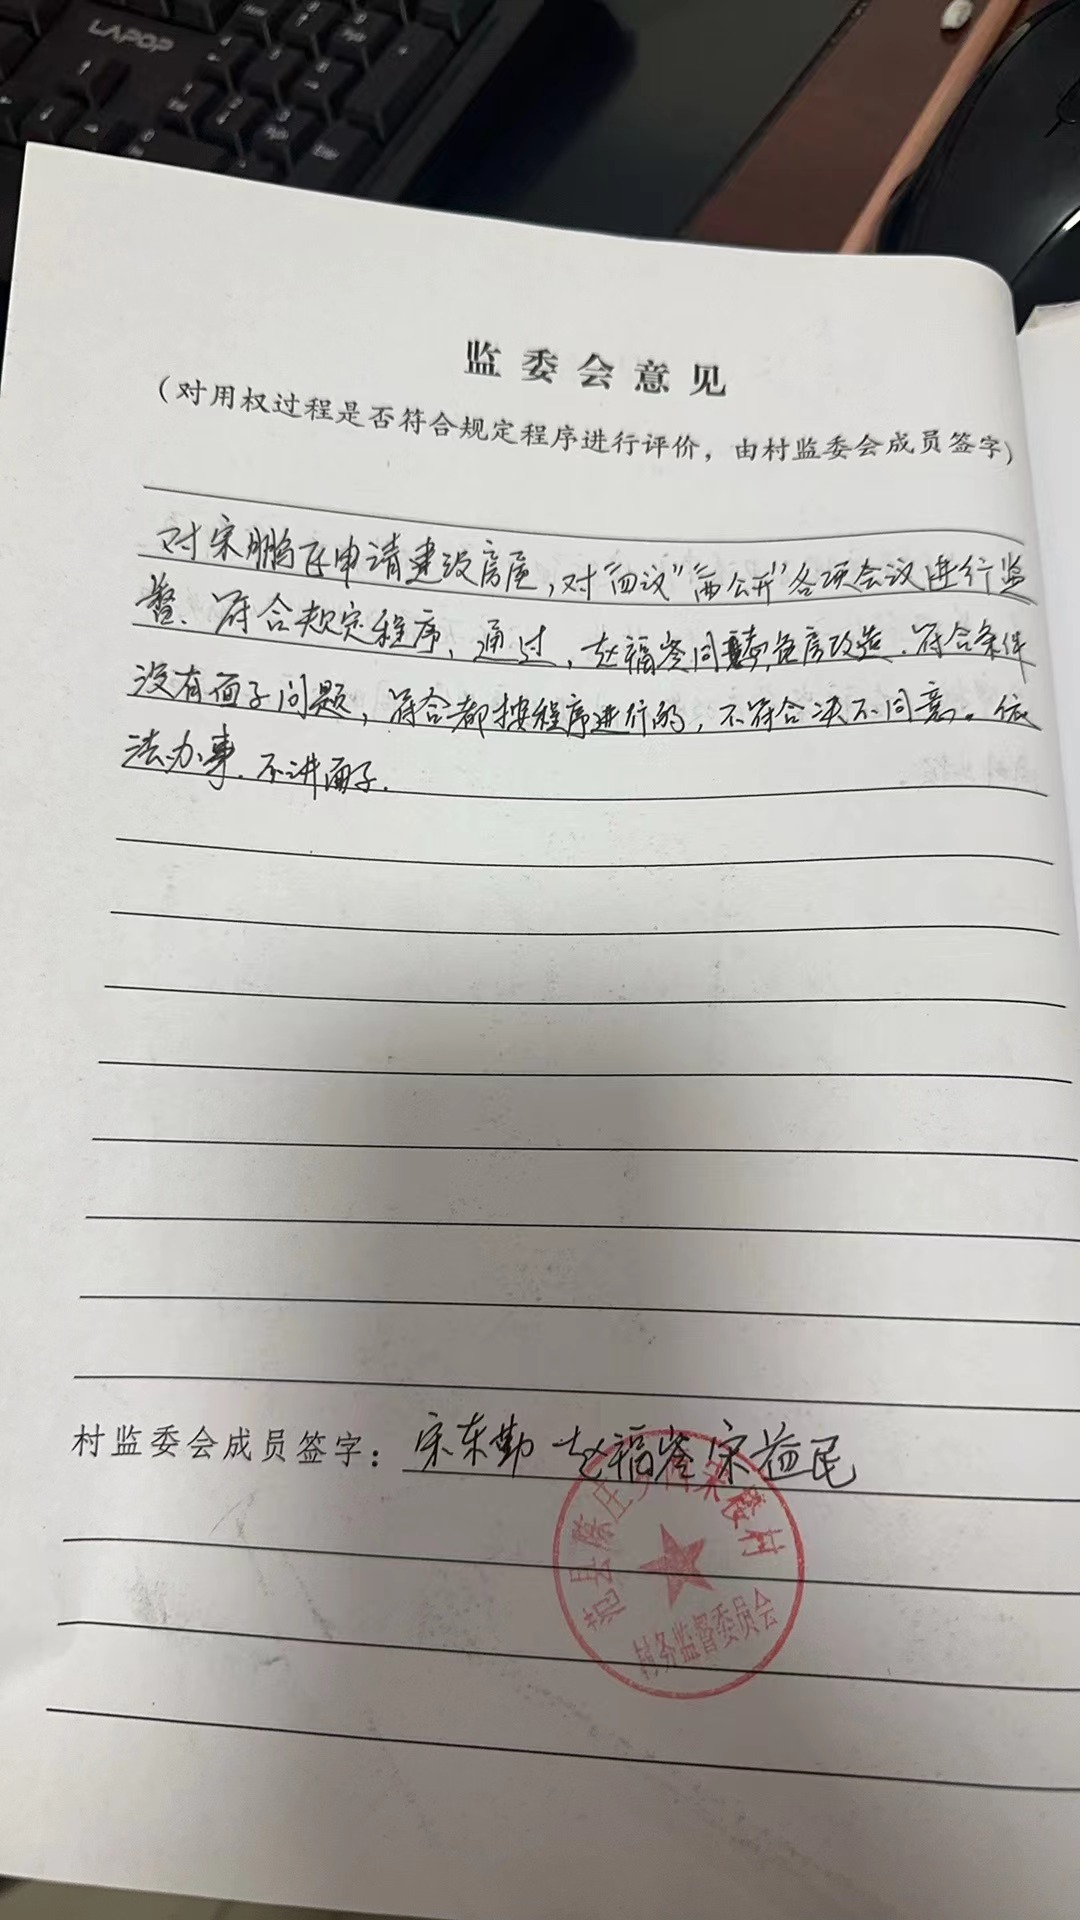 LAPOP
监委会意见
（对用权过程是否符合规定程序进行评价，由村监委会成员签字）
对宋鹏存申请建设房屋，对“四议”“两公开”各项会议进行监
督、符合规定程序，通过，赵福岺同意，危房改造．符合条件
没有面子问题，符合都按程序进行的，不符合决不同意。依
法办事．不讲面子．
村监委会成员签字：宋东勤 赵福岺 宋益民
范县 庄 村
村务监督委员会